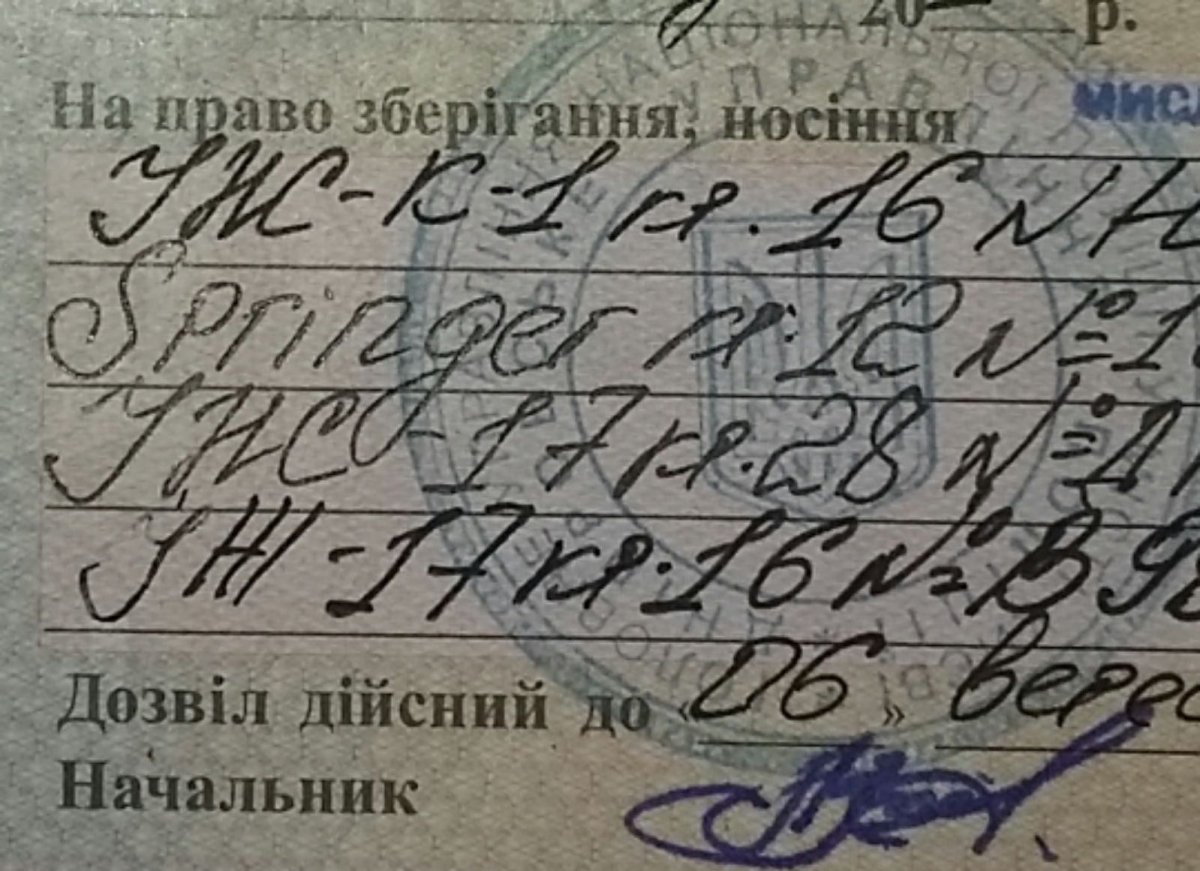 20 р.
На право зберігання, носіння мис
ІЖ-К-1 кл. 16 № Н
Springer кл. 12 № 1
ІЖ-17 кл. 28 №
ІЖ-17 кл. 16 № В 9
Дозвіл дійсний до «06» верес
Начальник